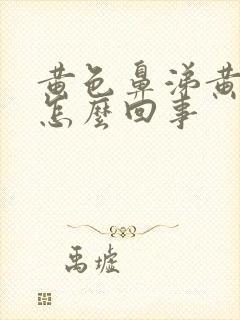 黄色鼻涕黄
怎麼回事
禹墟